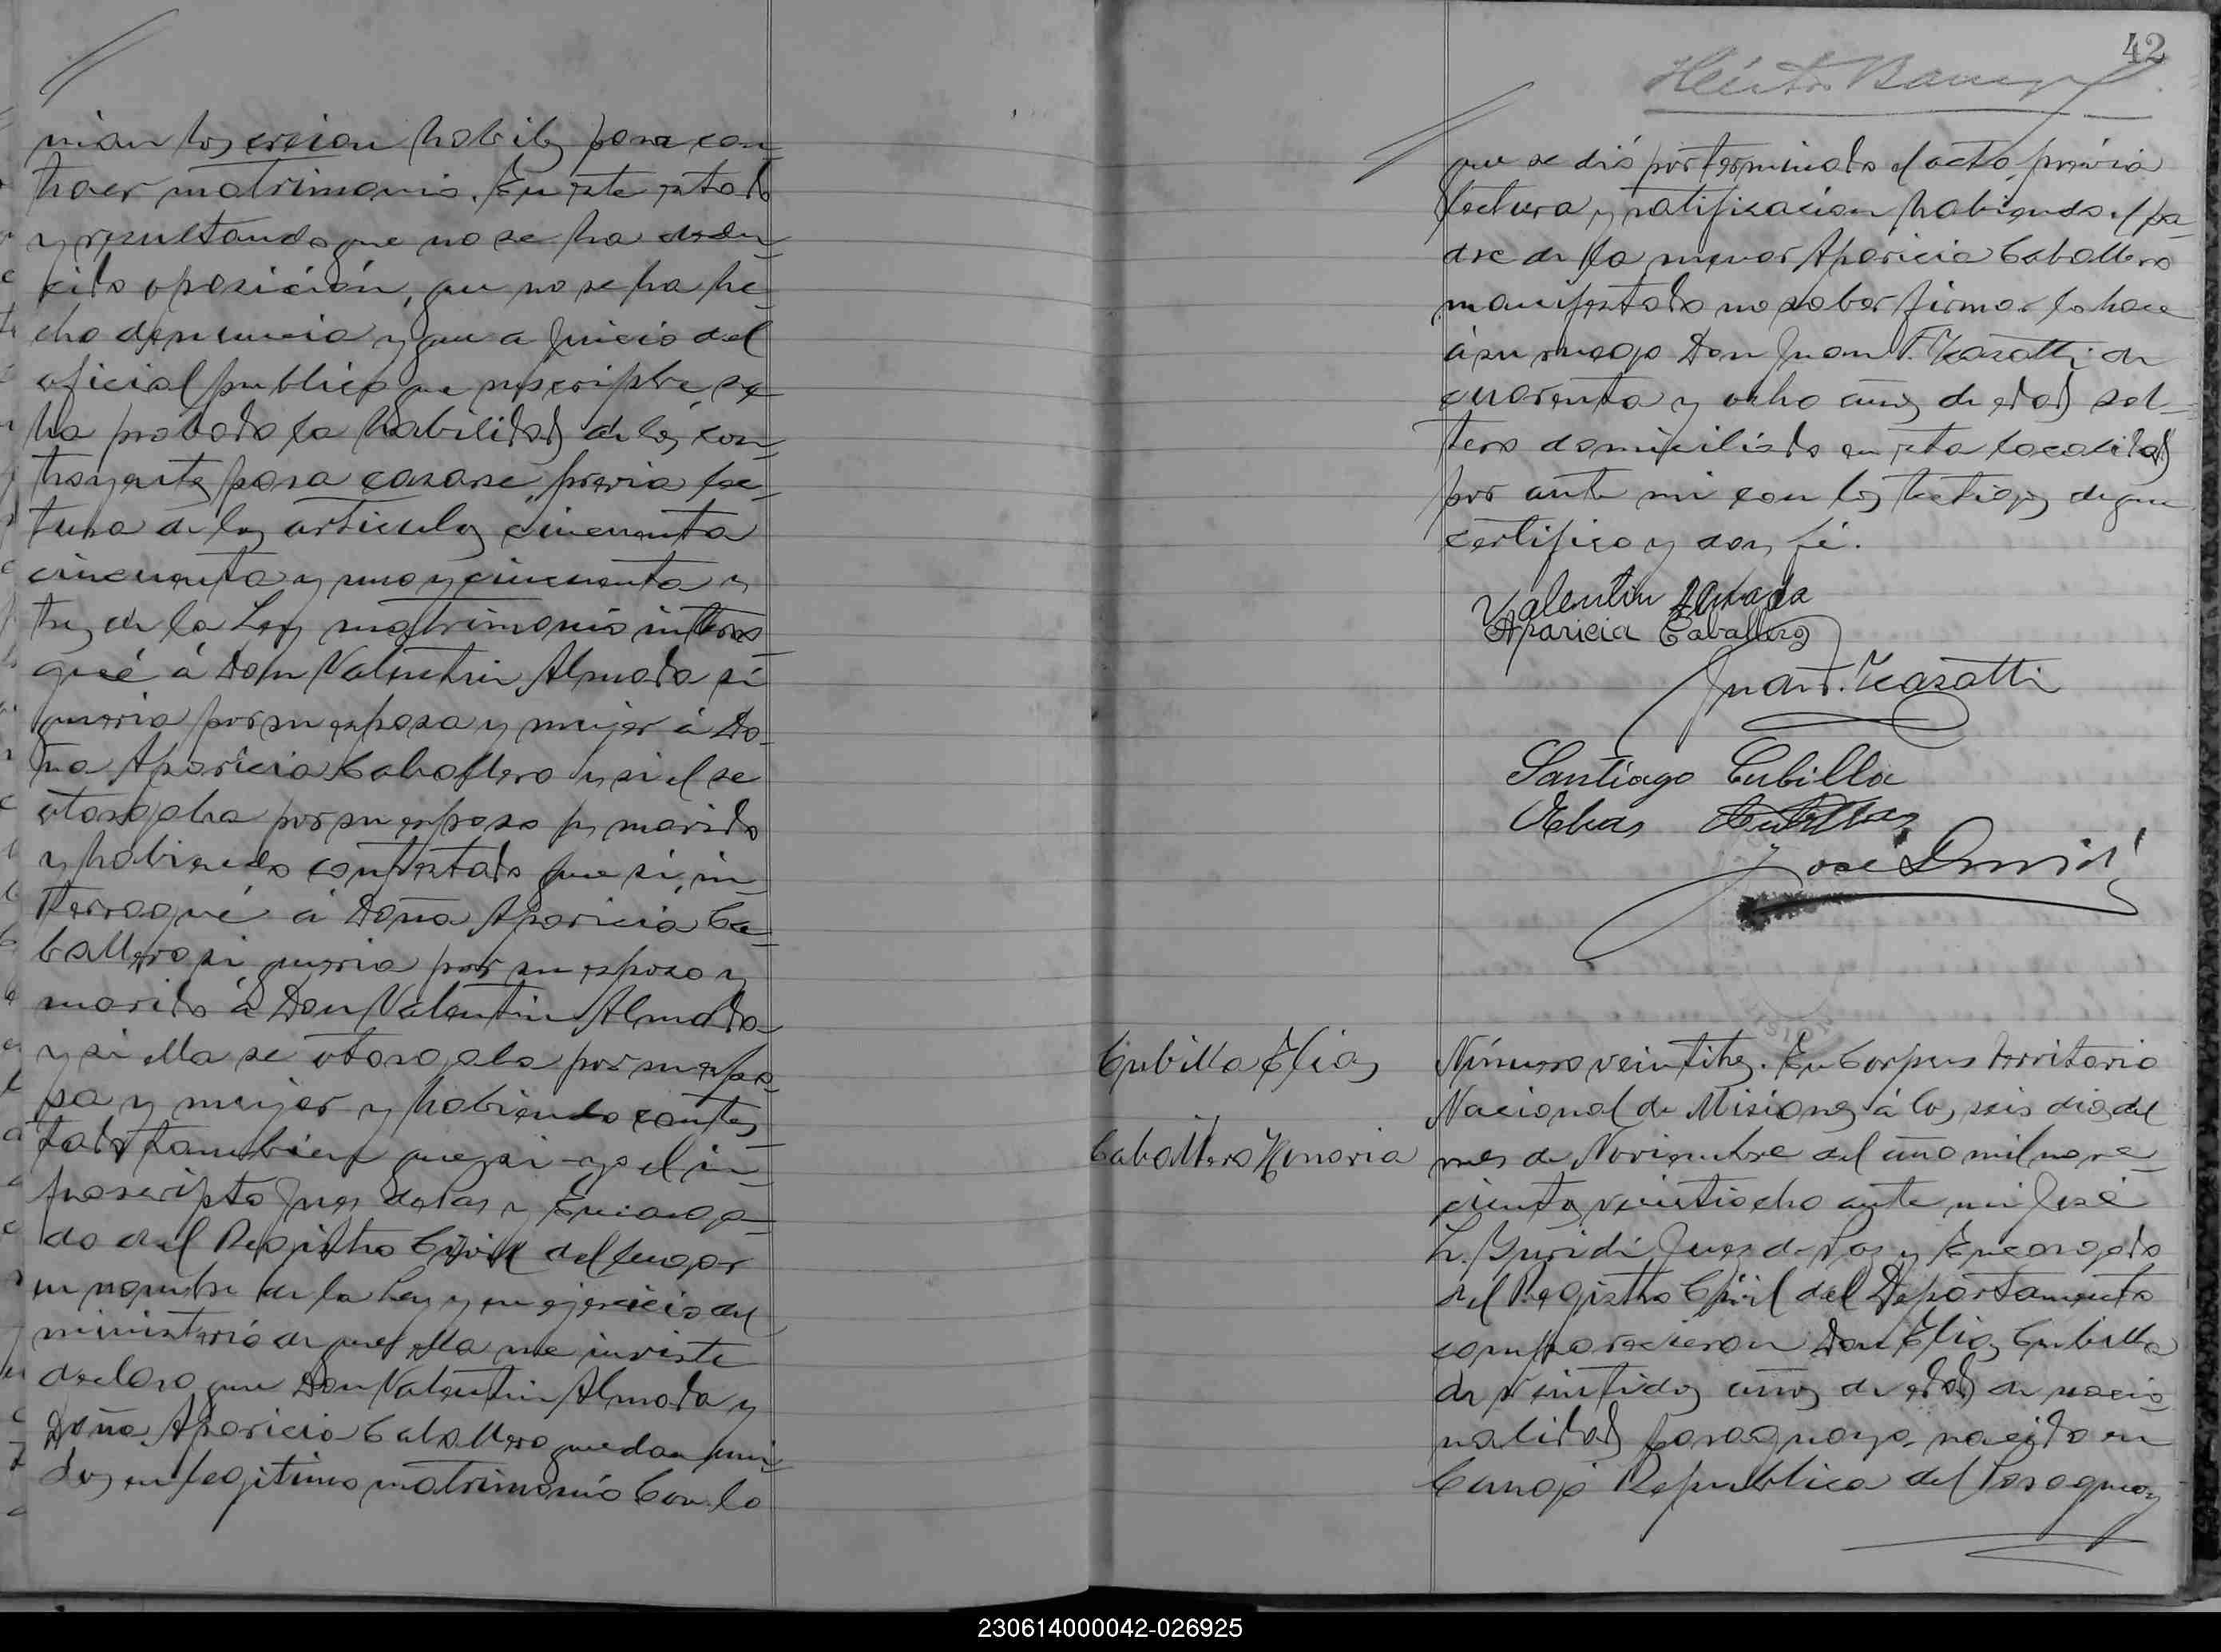 nian los creian habiles para con-
traer matrimonio. En este estado
y resultando que no se ha dedu-
cido oposición, que no se ha he-
cho denuncia y que a juicio del
oficial publico que suscripbe, se
ha probado la habilidad de los con-
trayentes para casarse, previa lec-
tura de los articulos cincuenta
cincuenta y uno y cincuenta y
tres de la Ley matrimonio interro-
gué á Don Valentin Almada si
queria por su esposa y mujer á Do-
ña Aparicia Caballero y si el se
otorgaba por su esposo y marido
y habiendo contestado que si, in-
terrogué á Doña Aparicia Ca-
ballero si queria por su esposo y
marido á Don Valentin Almada
y si ella se otorgaba por su espo-
sa y mujer y habiendo contes-
tado tambien que si yo el in-
frascripto Juez de Paz y Encarga-
do del Registro Civil del lugar
en nombre de la Ley y en ejercicio del
ministerio de que ella me inviste
declaro que Don Valentin Almada y
Doña Aparicia Caballero quedan uni-
dos en legitimo matrimonio Con lo
42
Héctor
que se dió por terminado el acto, prévia
lectura y ratificacion habiendo el pa-
dre de la menor Aparicia Caballero
manifestado no saber firmar lo hace
á su ruego Don Juan F. de
cuarenta y ocho años de edad sol-
tero domiciliado en esta localidad
por ante mi con los testigos de que
certifico y doy fé.
Valentin Almada
Aparicia Caballero
Juan F.
Santiago Cubilla
Elias Cubillas
José
Cubilla Elias
Caballero Honoria
Número veintitres. En Corpus territorio
Nacional de Misiones á los seis dias del
mes de Noviembre del año mil nove-
cientos veintiocho ante mi José
L. Yuridi Juez de Paz y Encargado
del Registro Civil del Departamento
comparecieron Don Elias Cubilla
de veintidos años de edad de nacio-
nalidad paraguaya nacido en
Republica del Paraguay
230614000042-026925